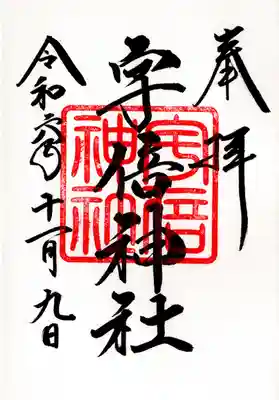 奉拝
宇倍神社
宇倍
神社
令和六年十一月九日